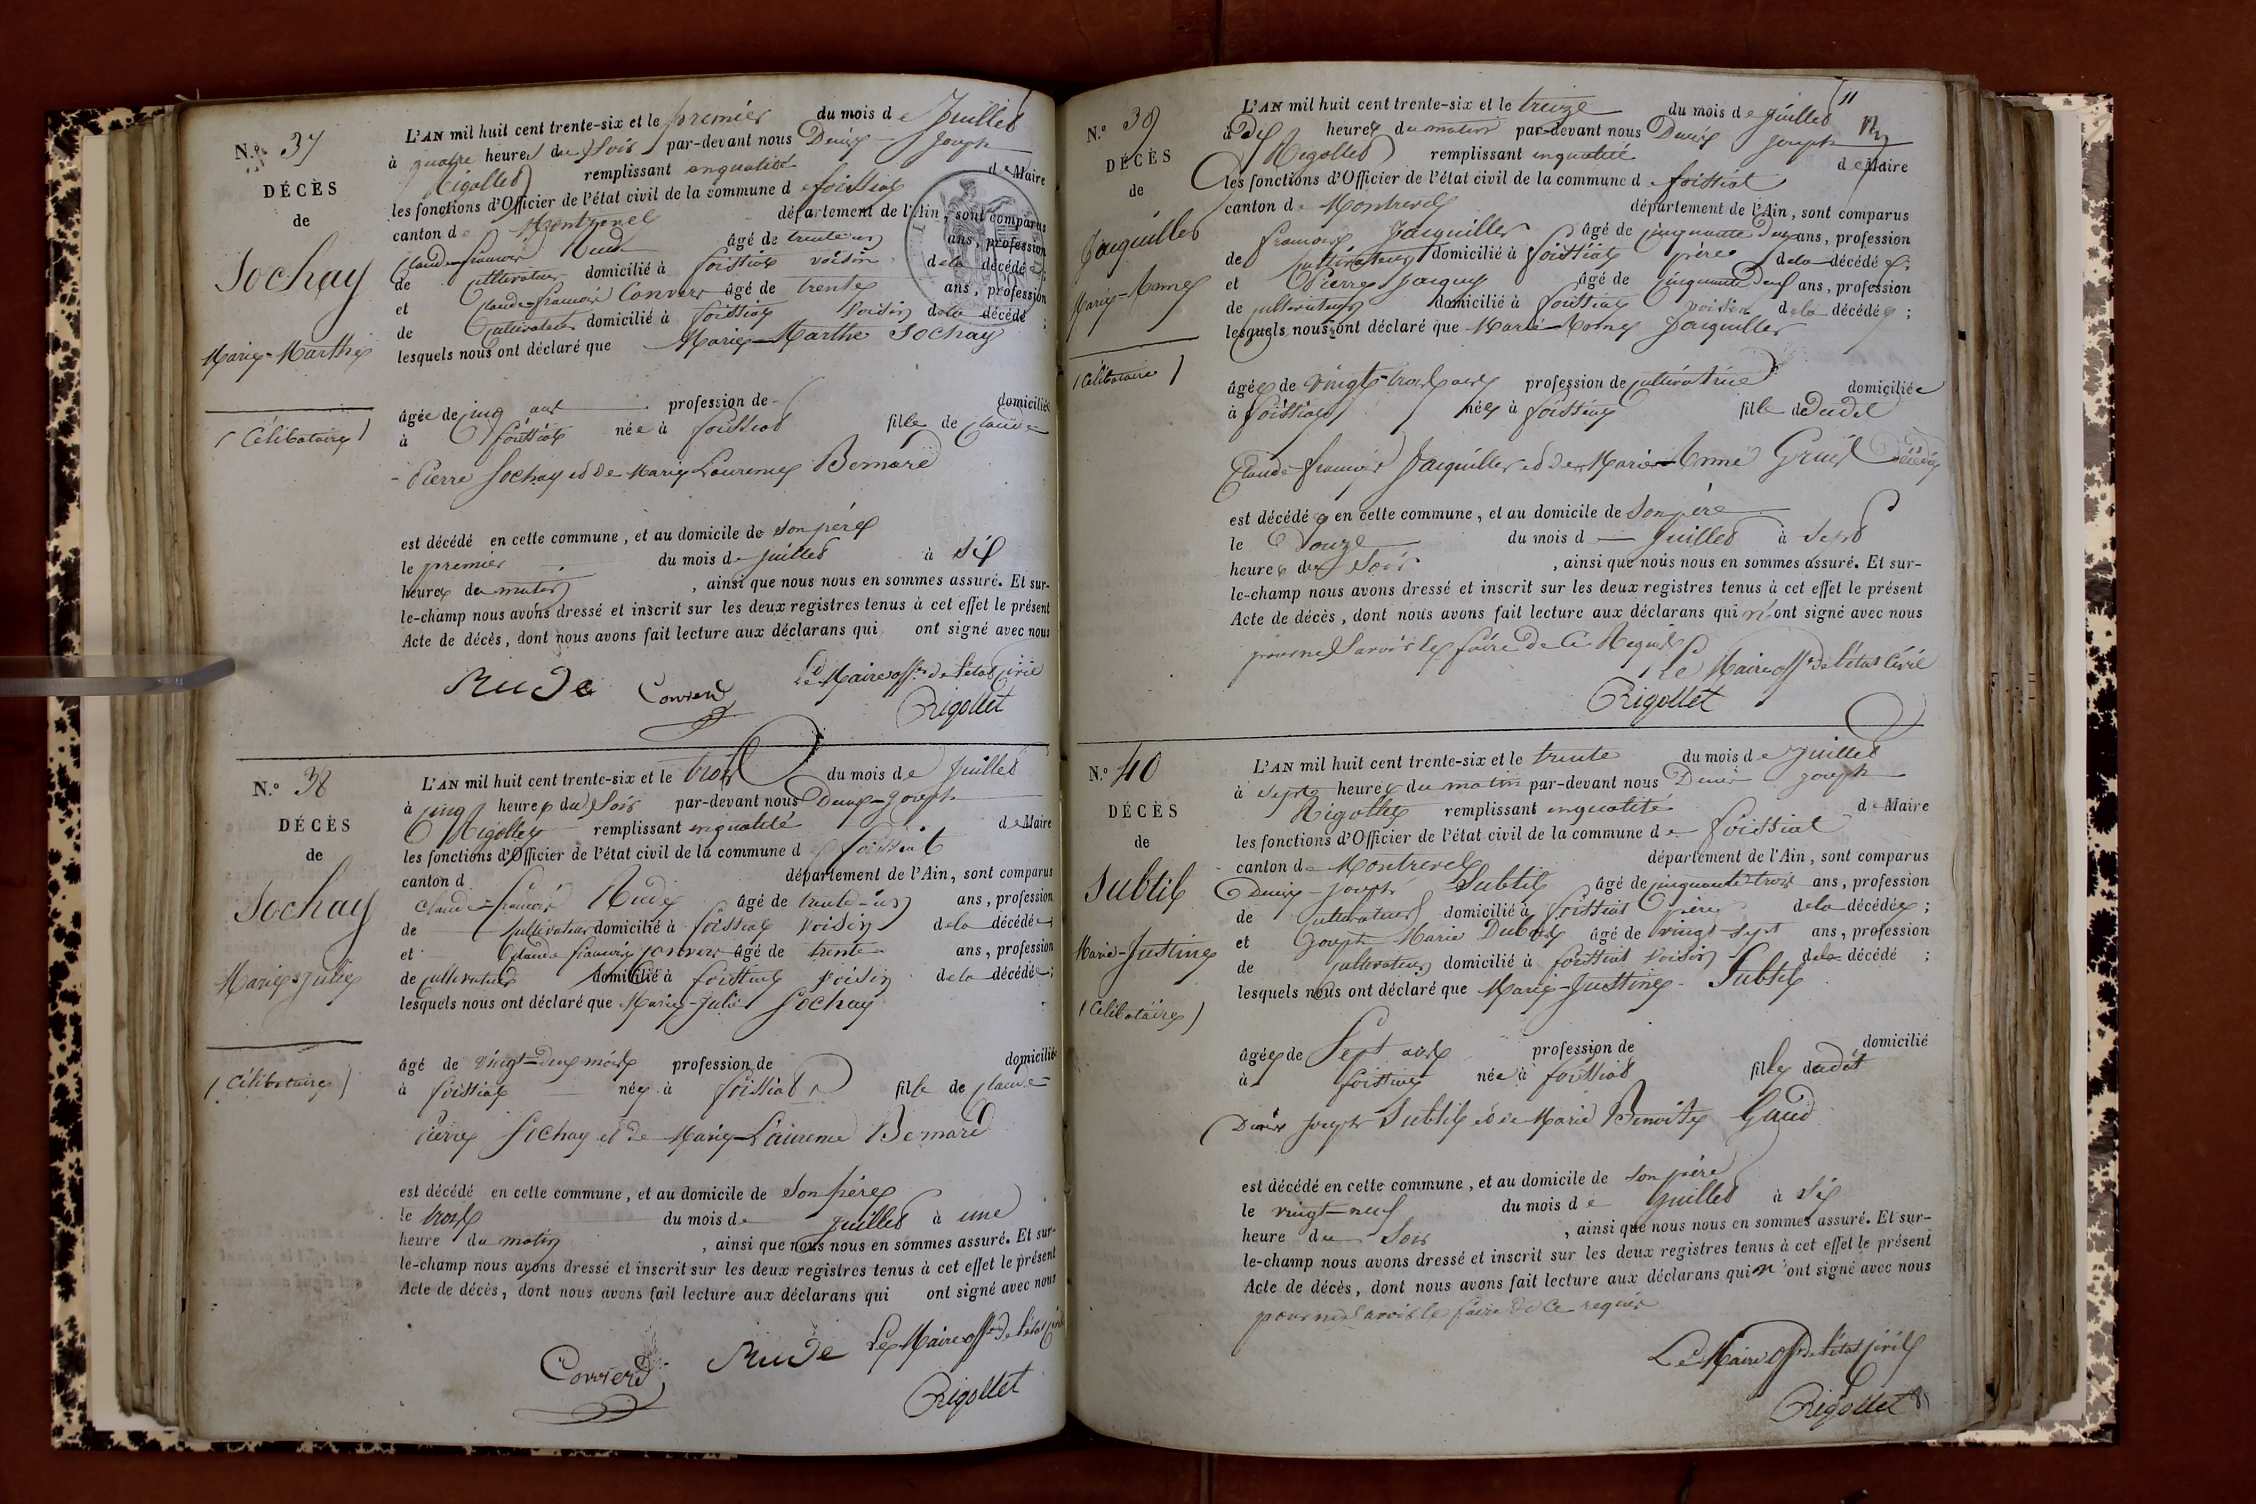 N.o 37
DÉCÈS
de
Sochay
Marie-Marthe
(Célibataire)
L'AN mil huit cent trente-six et le premier du mois de Juillet
à quatre heures du soir par-devant nous Denis Joseph
Rigollet remplissant en qualité de Maire
les fonctions d'Officier de l'état civil de la commune de foissiat
canton de Montrevel département de l'Ain, sont comparus
Claude-françois Rude âgé de trente un ans, profession
de cultivateur domicilié à foissiat voisin de la décédée;
et Claude-françois Convert âgé de trente ans, profession
de cultivateur domicilié à foissiat voisin de la décédé ;
lesquels nous ont déclaré que Marie-Marthe Sochay
âgée de cinq ans profession de domiciliée
à foissiat née à foissiat fille de Claude
-Pierre Sochay et de Marie Laurence Bernard
est décédé en cette commune, et au domicile de son père
le premier du mois de juillet à six
heures du matin, ainsi que nous nous en sommes assuré. Et sur-
le-champ nous avons dressé et inscrit sur les deux registres tenus à cet effet le présent
Acte de décès, dont nous avons fait lecture aux déclarans qui ont signé avec nous
Rude Convert Le Maire off.er de l'état civil
Rigollet
N.o 38
DÉCÈS
de
Sochay
Marie-Julie
(Célibataire)
L'AN mil huit cent trente-six et le trois du mois de Juillet
à cinq heures du soir par-devant nous Denis-Joseph
Rigollet remplissant en qualité de Maire
les fonctions d'Officier de l'état civil de la commune d foissiat
canton d département de l'Ain, sont comparus
Claude-françois Rude âgé de trente-un ans, profession
de cultivateur domicilié à foissiat voisin de la décédée
et Claude françois convert âgé de trente ans, profession
de cultivateur domicilié à foissiat voisin de la décédée;
lesquels nous ont déclaré que Marie-Julie Sochay
âgé de vingt-deux mois profession de domiciliée
à foissiat née à foissiat fille de Claude
Pierre Sochay et de Marie-Laurence Bernard
est décédé en cette commune, et au domicile de son père
le trois du mois de juillet à une
heure du matin, ainsi que nous nous en sommes assuré. Et sur-
le-champ nous avons dressé et inscrit sur les deux registres tenus à cet effet le présent
Acte de décès, dont nous avons fait lecture aux déclarans qui ont signé avec nous
Convert Rude Le Maire off.er de l'état civil
Rigollet
11
N.o 39
DÉCÈS
de
Jaquillet
Marie-Anne
(Célibataire)
L'AN mil huit cent trente-six et le treize du mois de juillet
à dix heures du matin par-devant nous Denis Joseph
Rigollet remplissant en qualité de Maire
les fonctions d'Officier de l'état civil de la commune de foissiat
canton de Montrevel département de l'Ain, sont comparus
françois Jaquillet âgé de cinquante deux ans, profession
de cultivateur domicilié à foissiat père de la décédée;
et Pierre Jacquet âgé de cinquante deux ans, profession
de cultivateur domicilié à foissiat voisin de la décédée;
lesquels nous ont déclaré que Marie-Anne Jaquillet
âgée de vingt-trois ans profession de cultivatrice domiciliée
à foissiat née à foissiat fille de dudit
Claude-françois Jaquillet et de Marie-Anne décédée
est décédée en cette commune, et au domicile de son père
le Douze du mois d Juillet à sept
heures du soir, ainsi que nous nous en sommes assuré. Et sur-
le-champ nous avons dressé et inscrit sur les deux registres tenus à cet effet le présent
Acte de décès, dont nous avons fait lecture aux déclarans qui n'ont signé avec nous
pour ne savoir le faire de ce Requis
Le Maire off.er de l'état Civil
Rigollet
N.o 40
DÉCÈS
de
Subtil
Marie-Justine
(Célibataire)
L'AN mil huit cent trente-six et le trente du mois de juillet
à sept heures du matin par-devant nous Denis Joseph
Rigollet remplissant en qualité de Maire
les fonctions d'Officier de l'état civil de la commune de foissiat
canton de Montrevel département de l'Ain, sont comparus
Denis-Joseph Subtil âgé de cinquante-trois ans, profession
de cultivateur domicilié à foissiat père de la décédée;
et Joseph Marie âgé de vingt-sept ans, profession
de cultivateur domicilié à foissiat voisin de la décédé ;
lesquels nous ont déclaré que Marie-Justine Subtil
âgée de Sept ans profession de domicilié
à foissiat née à foissiat fille dudit
Denis Joseph Subtil et de Marie Benoite Gaud
est décédé en cette commune, et au domicile de son père
le vingt-neuf du mois de juillet à six
heure du Soir, ainsi que nous nous en sommes assuré. Et sur-
le-champ nous avons dressé et inscrit sur les deux registres tenus à cet effet le présent
Acte de décès, dont nous avons fait lecture aux déclarans qui n'ont signé avec nous
pour ne savoir le faire de ce requis
Le Maire off.er de l'état civil
Rigollet